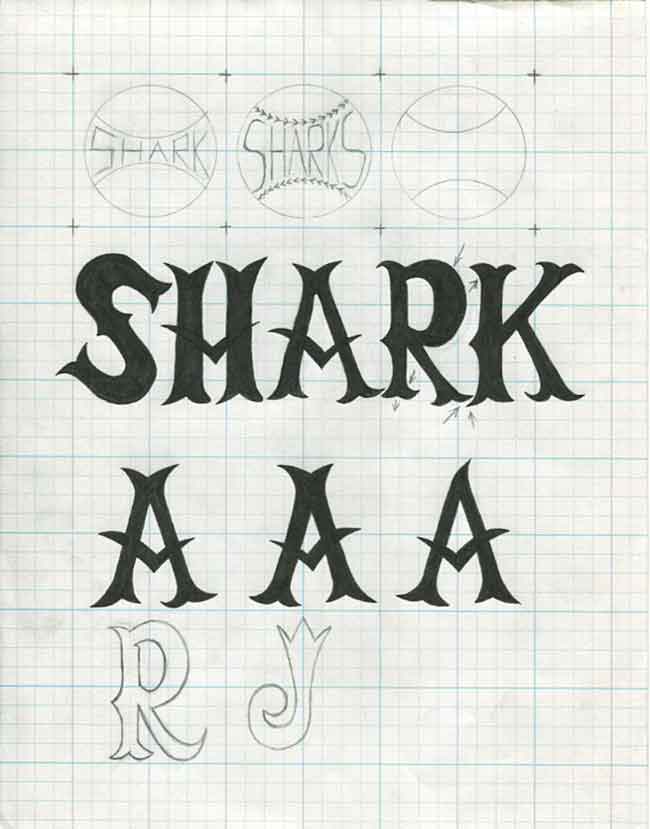 SHARK SHARKS
SHARK
A A A
R J